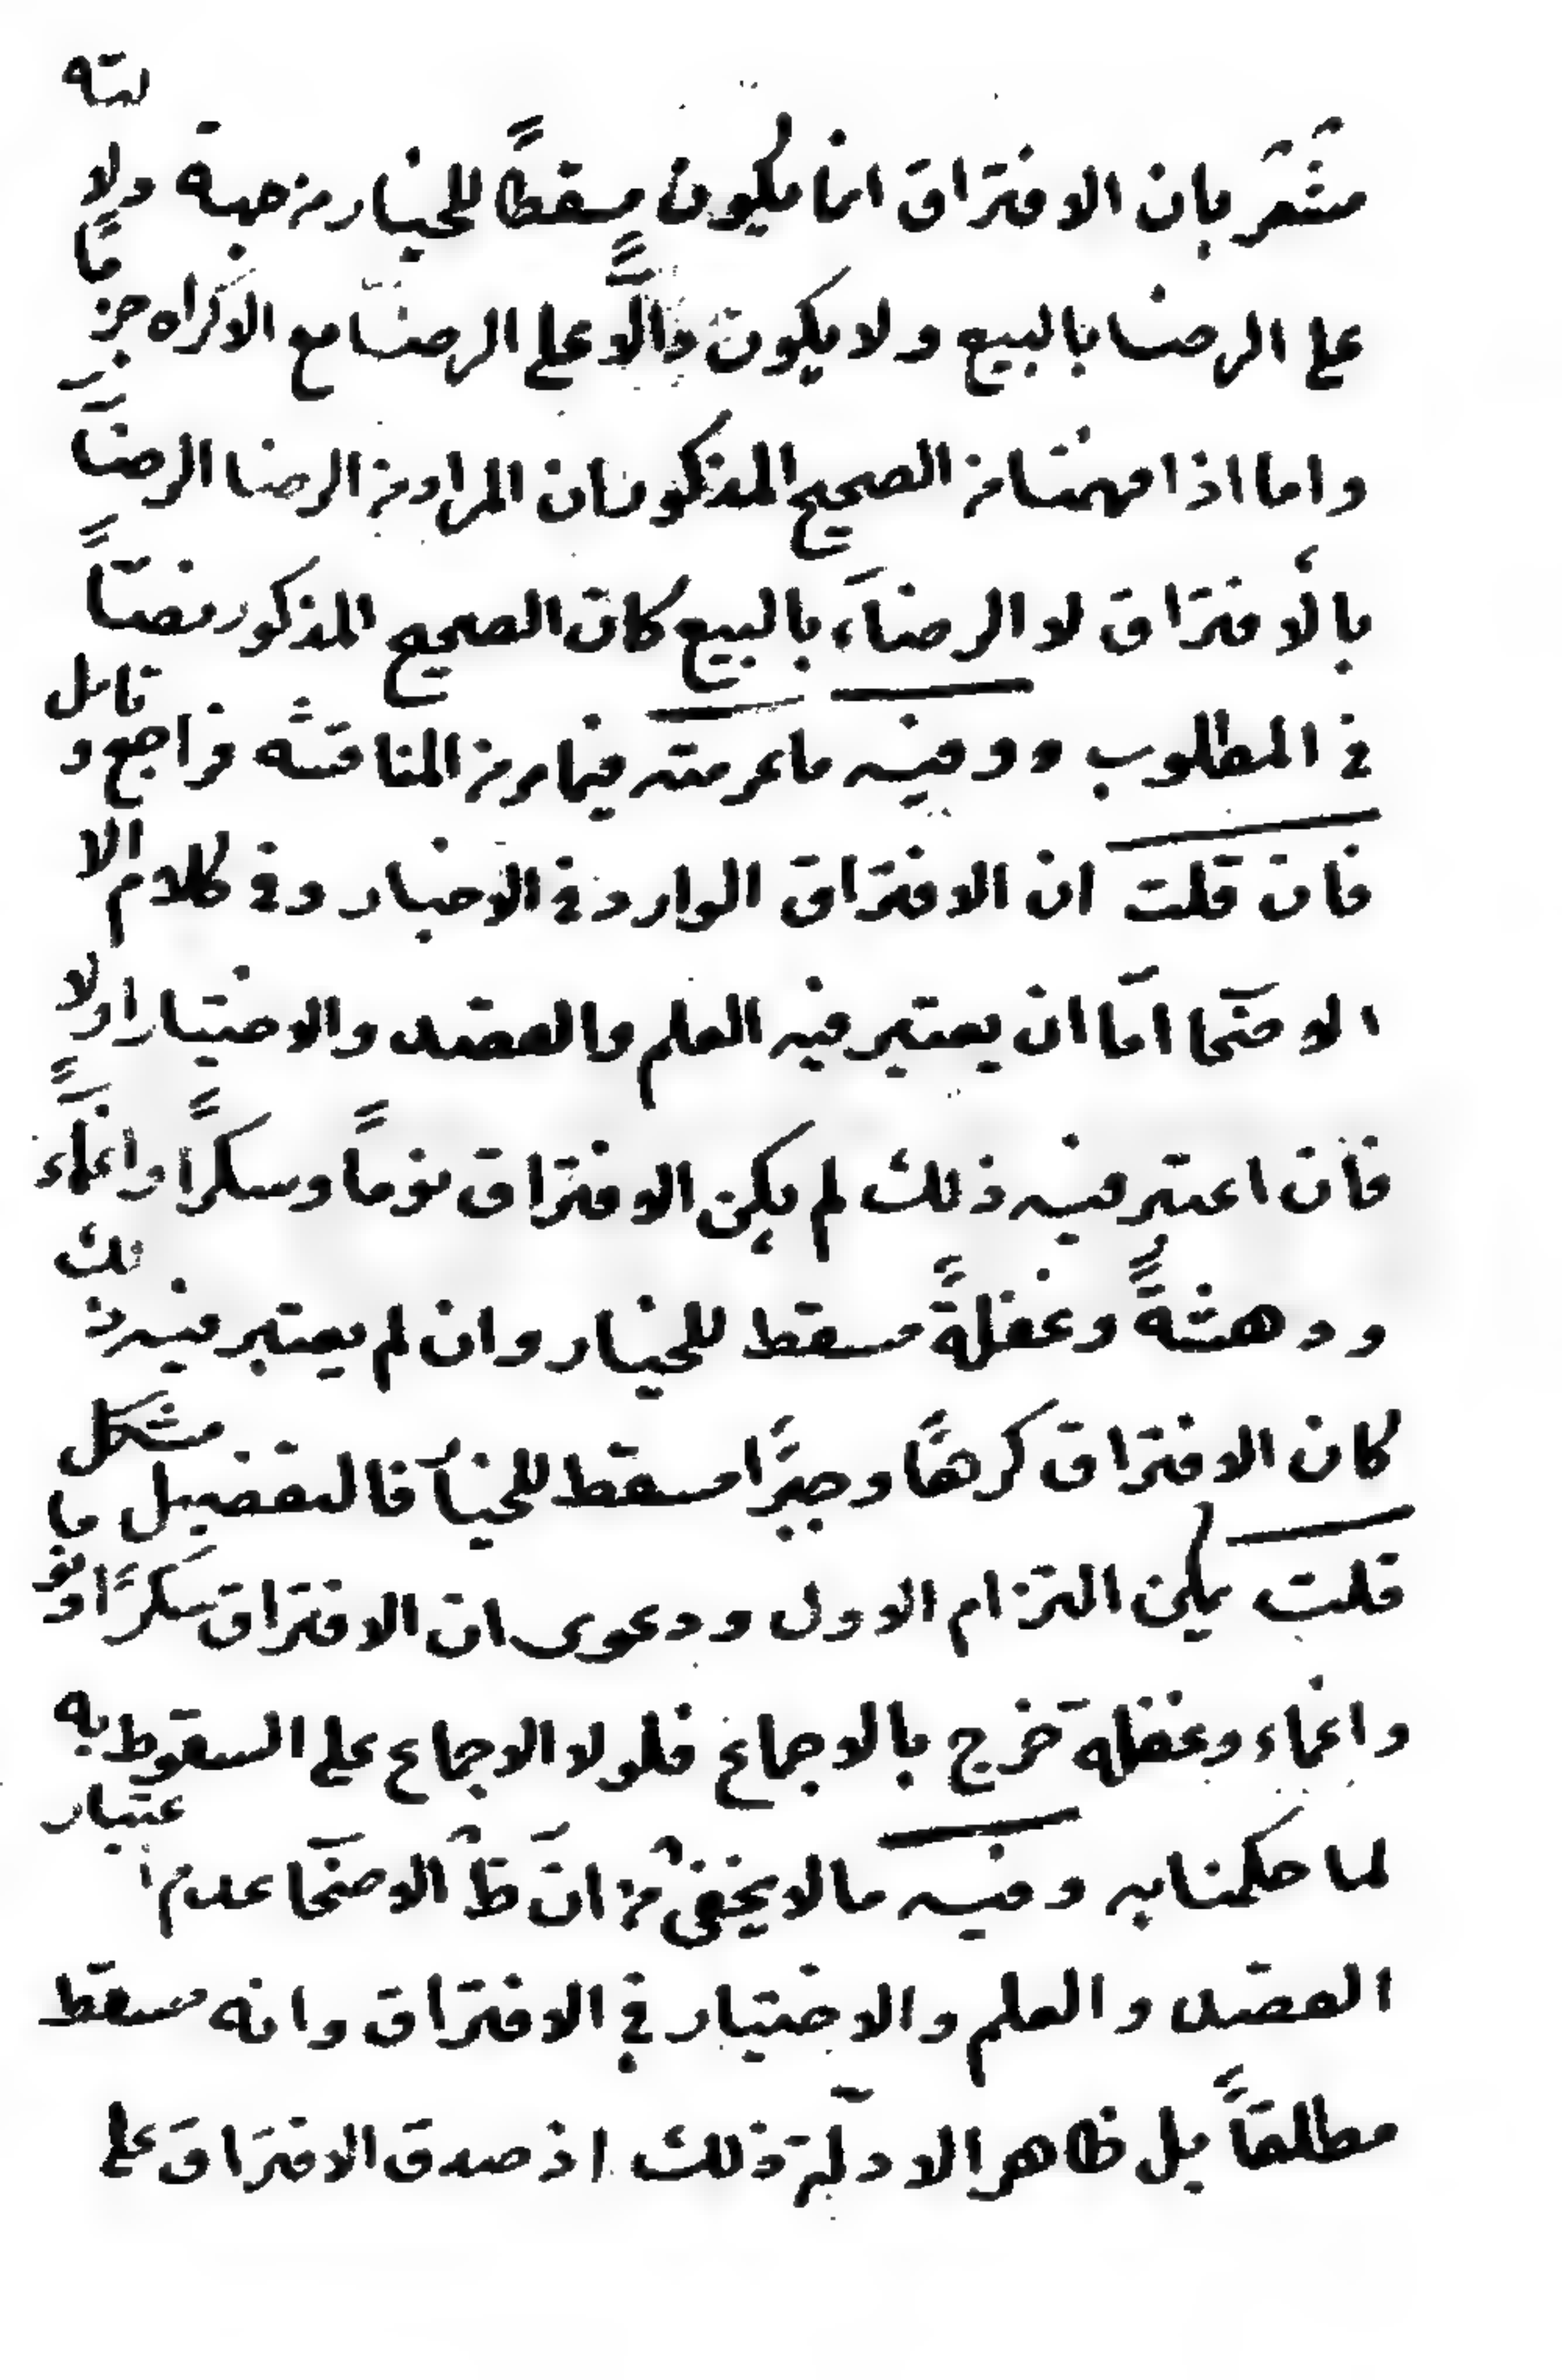 مشعر بان الافتراق انما يكون مسقطًا للخيار من جهة دلالته
على الرضا بالبيع ولا يكون دالًّا على الرضا مع الاكراه جزمًا
واما اذا فهمنا من الصحيح المذكور ان المراد من الرضا الرضا
بالافتراق لا الرضاء بالبيع كان الصحيح المذكور نصًّا
في المطلوب وفيه ما عرفته فيما مر من المناقشه فراجع وتامل
فان قلت ان الافتراق الوارد في الاخبار وفي كلام الا
الاصحا امّا ان يعتبر فيه العلم والقصد والاختيار اولا
فان اعتبر فيه ذلك لم يكن الافتراق نومًا وسكرًا واغماءً
ودهشةً وغفلةً مسقط للخيار وان لم يعتبر فيه ذلك
كان الافتراق كرهًا وجبرًا مسقط للخيا فالتفضيل مشكل
قلت يمكن التزام الاول ودعوى ان الافتراق سكرًا ونوما
واغماء وغفلة خرج بالاجماع فلولا الاجماع على السقوط به
لما حكمنا به وفيه مالا يخفى من انّ ظ الاصحا عدم اعتبار
القصد والعلم والاختيار في الافتراق وانه مسقط
مطلقًا بل ظاهر الادلّة ذلك اذ صدق الافتراق على